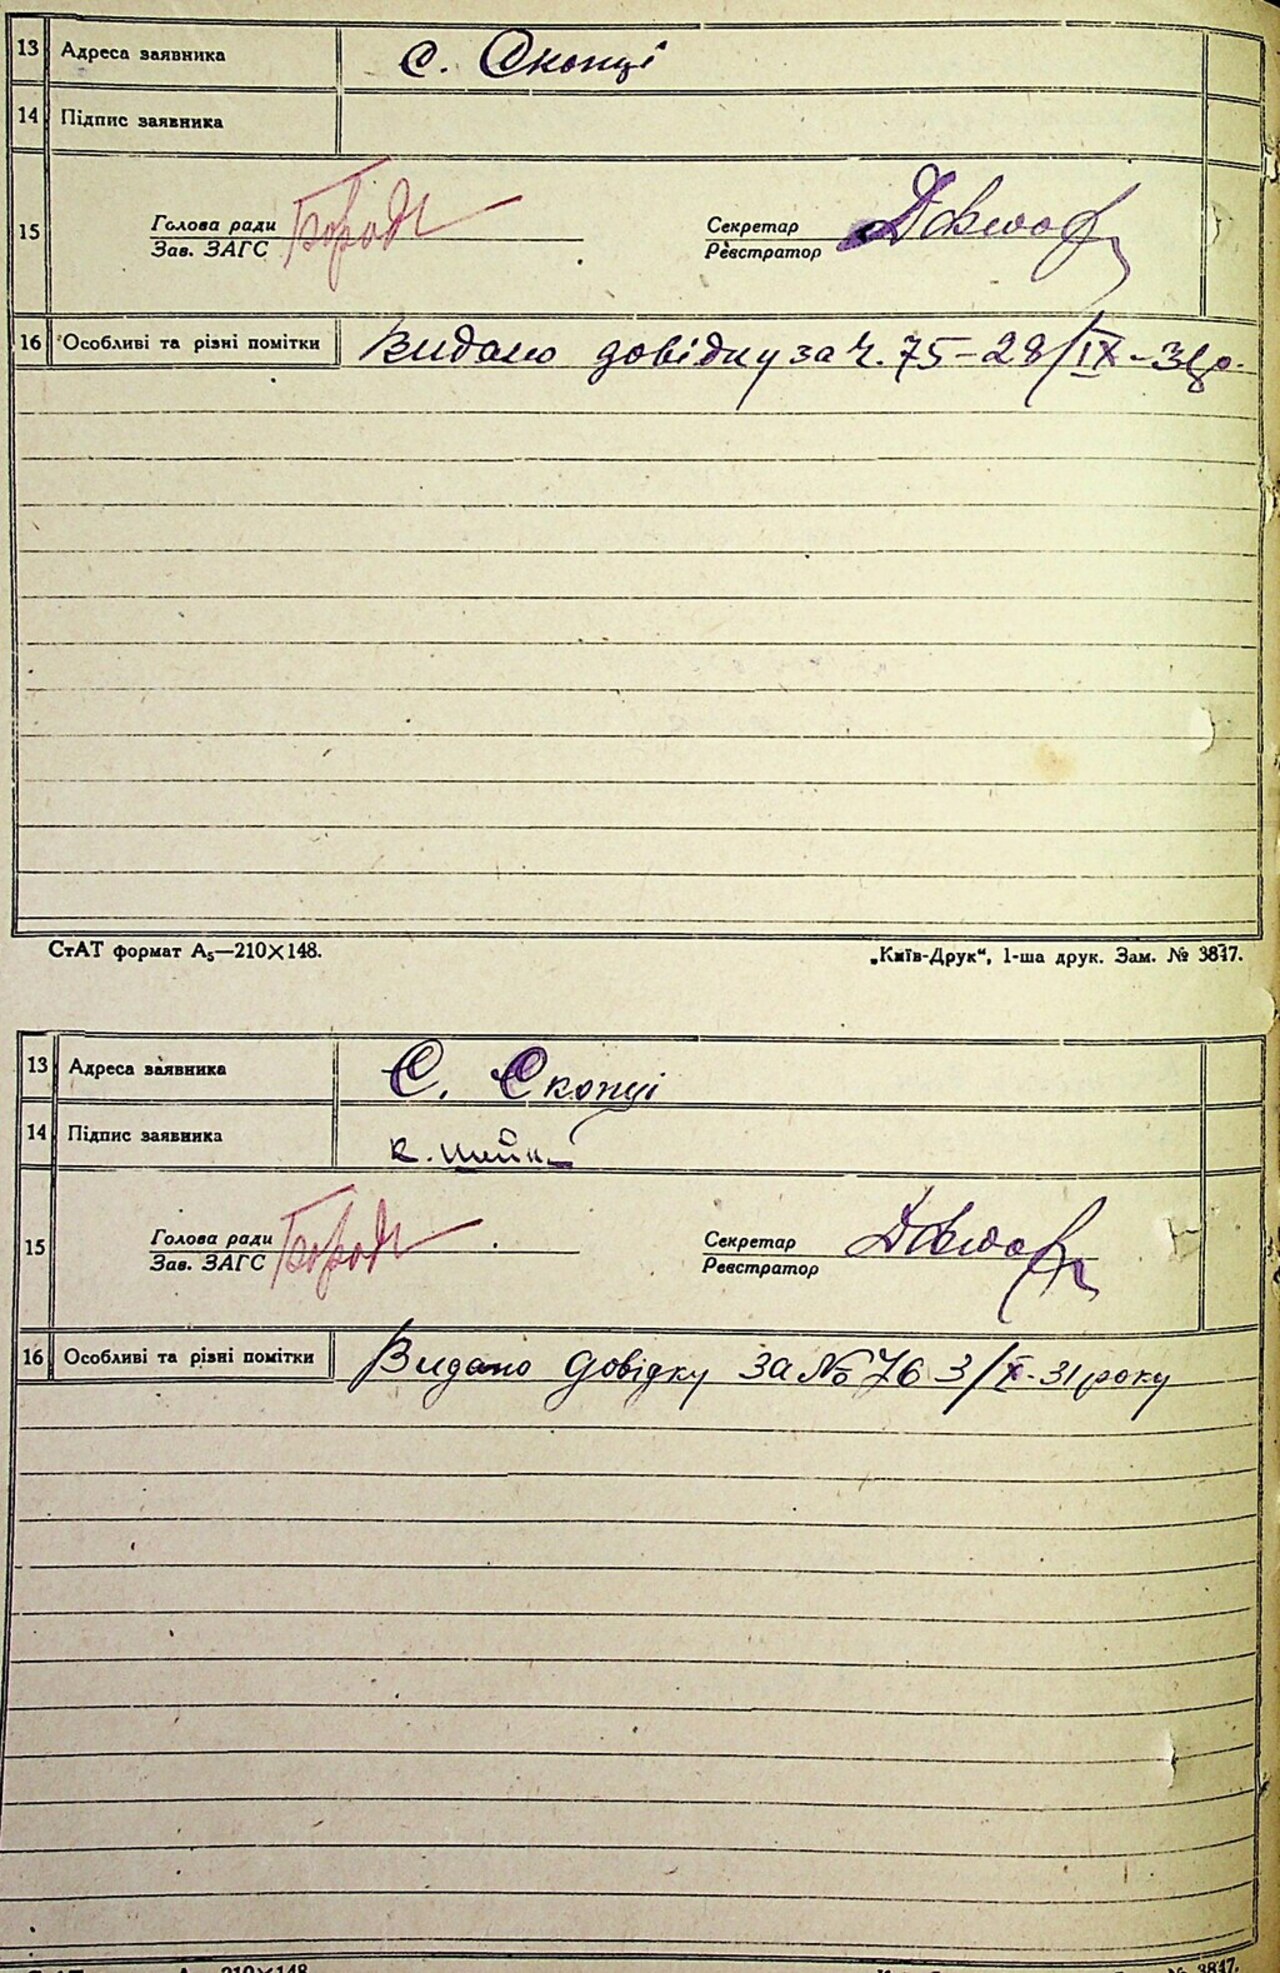 13 Адреса заявника с. Скопці
14 Підпис заявника
15 Голова ради Секретар
Зав. ЗАГС Реєстратор
16 Особливі та різні помітки Видано довідку за ч. 75-28/IX-31р.
СтАТ формат А₅—210×148. „Київ-Друк“, 1-ша друк. Зам. № 3847.
13 Адреса заявника С. Скопці
14 Підпис заявника к.
15 Голова ради Секретар
Зав. ЗАГС Реєстратор
16 Особливі та різні помітки Видано довідку за № 76 3/X-31 року
210×148 № 3847.